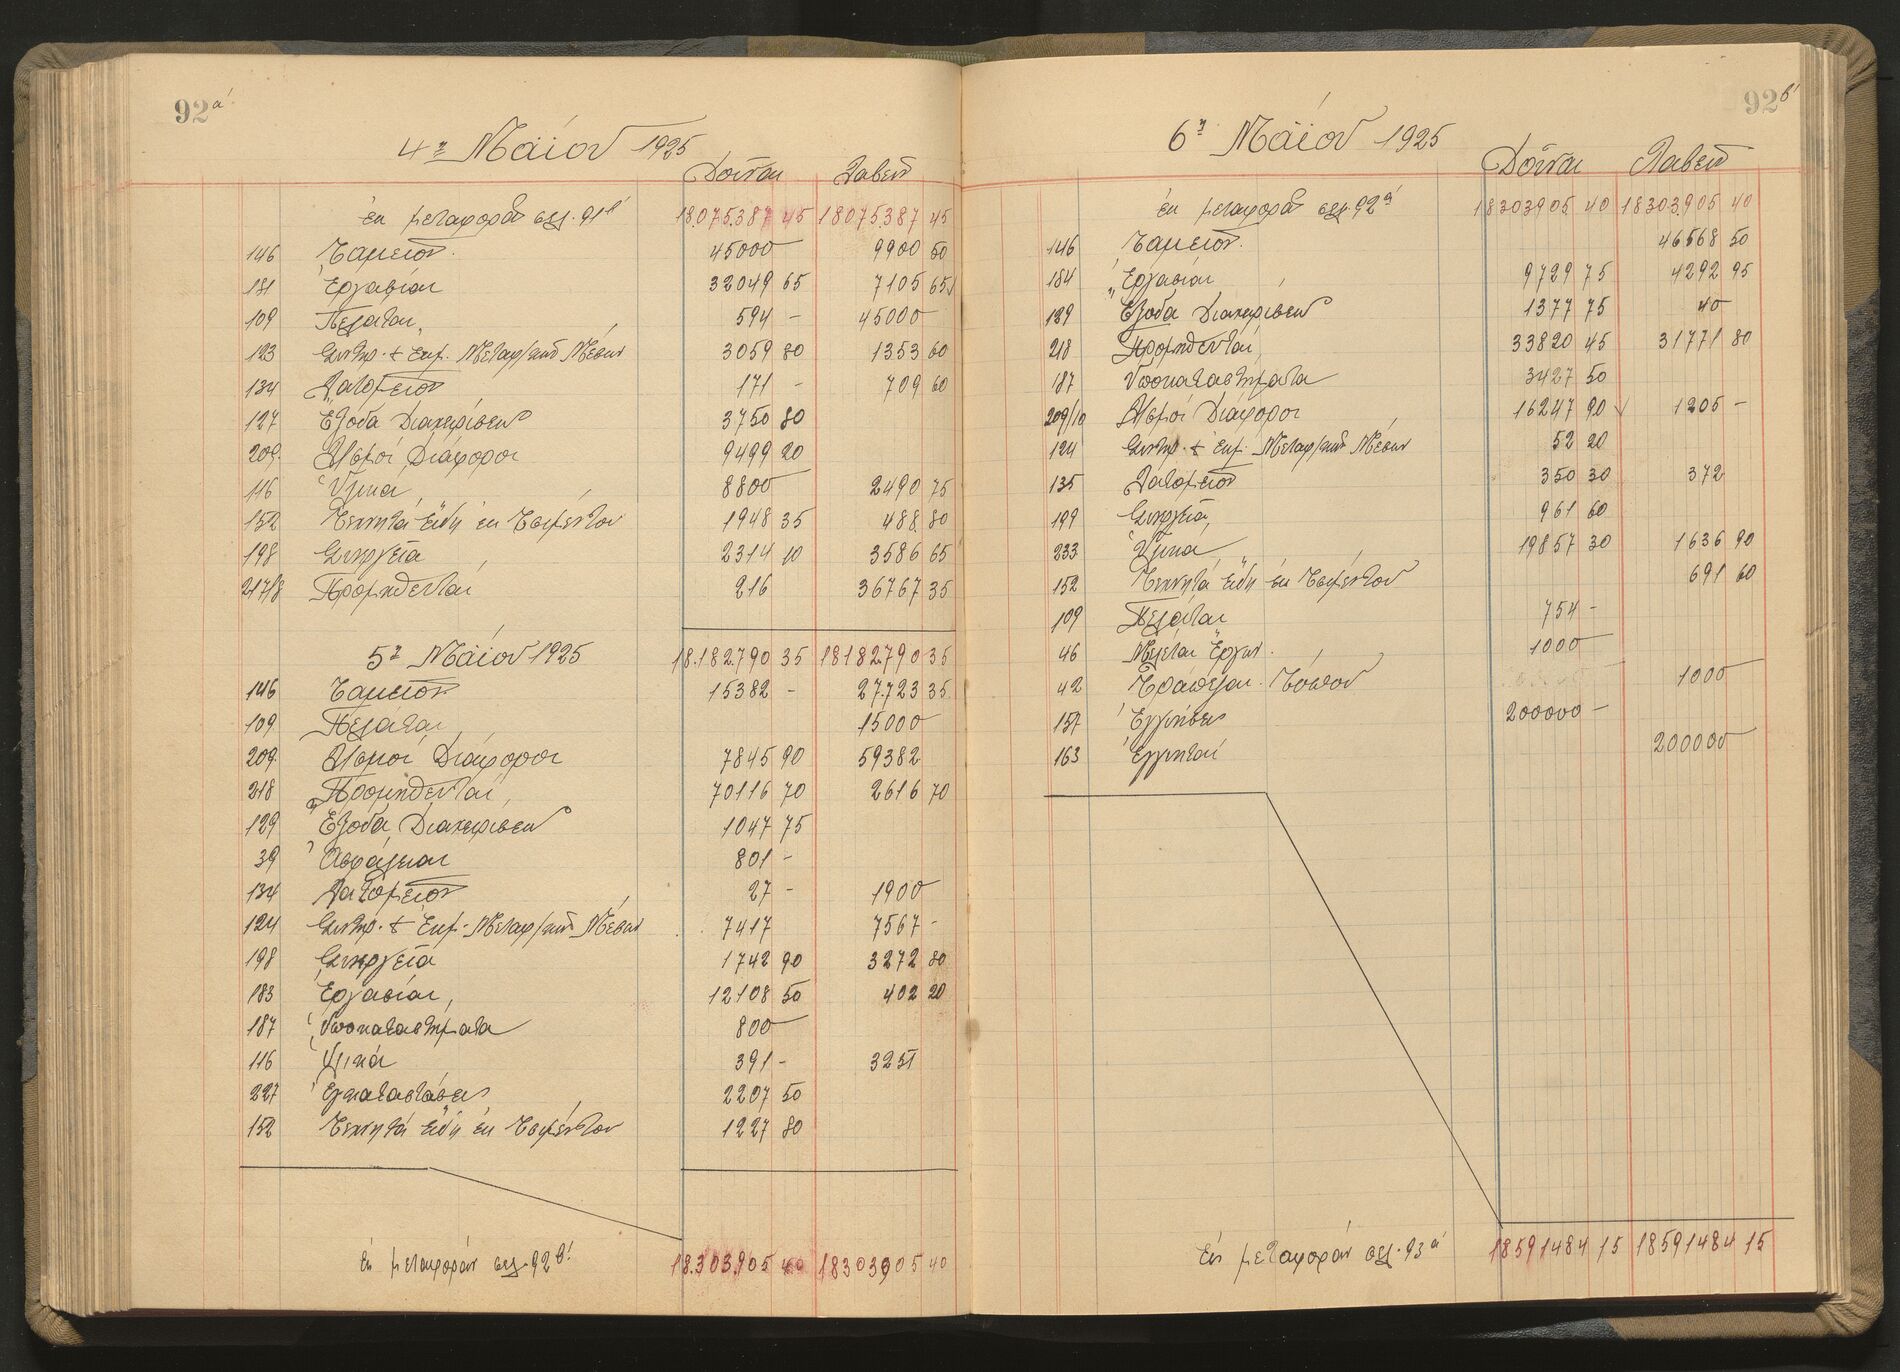 92α´
4η Μαΐου 1925
Δοῦναι Λαβεῖν
ἐκ μεταφορᾶς σελ. 91β´ 18.075.387 45 18075.387 45
146 Ταμεῖον. 45000 9900 50
181 Ἐργασίαι 32049 65 7105 65
109 Πελάται 594 – 45000
123 Συντηρ. & Ἐκμ. Μεταφ/κῶν Μέσων 3059 80 1353 60
134 Λατομεῖον 171 – 709 60
127 Ἔξοδα Διαχειρίσεως 3750 80
209. Λ/σμοί Διάφοροι 9499 20
116 Ὑλικά 8800 2490 75
152 Τεχνητά εἴδη ἐκ Τσιμέντου 1948 35 488 80
198 Συνεργεῖα 2314 10 3586 65
217/8 Προμηθευταί 216 36767 35
5η Μαΐου 1925 18.182.790 35 18182.790 35
146 Ταμεῖον 15382 – 27.723 35
109 Πελάται 15000
209. Λ/σμοί Διάφοροι 7845 90 59382
218 Προμηθευταί 70116 70 2616 70
129 Ἔξοδα Διαχειρίσεως 1047 75
39 Ἀσφάλειαι 801 –
134 Λατομεῖον 27 – 1900
124 Συντηρ. & Ἐκμ. Μεταφ/κῶν Μέσων 7417 7567 –
198 Συνεργεῖα 1742 90 3272 80
183 Ἐργασίαι 12108 50 402 20
187 Ὑποκαταστήματα 800
116 Ὑλικά 391 – 3251
227 Ἐγκαταστάσεις 2207 50
152 Τεχνητά εἴδη ἐκ Τσιμέντου 1227 80
Εἰς μεταφοράν σελ. 92β´. 18.303.905 40 18303905 40
92β´
6η Μαΐου 1925
Δοῦναι Λαβεῖν
ἐκ μεταφορᾶς σελ. 92α´ 18303905 40 18303.905 40
146 Ταμεῖον. 46568 50
184 Ἐργασίαι 9729 75 4292 95
129 Ἔξοδα Διαχειρίσεως 1377 75 40
218 Προμηθευταί 33820 45 31771 80
187 Ὑποκαταστήματα 3427 50
209/10 Λ/σμοί Διάφοροι 16247 90 1205 –
124 Συντηρ. & Ἐκμ. Μεταφ/κῶν Μέσων 52 20
135 Λατομεῖον 350 30 372
199 Συνεργεῖα 961 60
233 Ὑλικά 19857 30 1636 90
152 Τεχνητά εἴδη ἐκ Τσιμέντου 691 60
109 Πελάται 754 –
46 Μελέται Ἔργων. 1000
42 Τράπεζαι 1000
157 Ἐγγυήσεις 200000 –
163 Ἐγγυηταί 200000
Εἰς μεταφοράν σελ. 93α´ 18591484 15 18591484 15